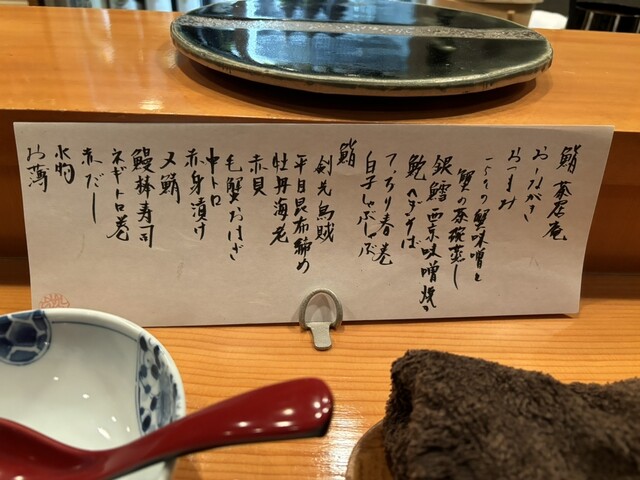 鮨 茶居庵
おしながき
おつまみ
蟹味噌と
蟹の茶碗蒸し
銀鱈西京味噌焼き
鮑
春巻
白子しゃぶしゃぶ
鮨
剣先烏賊
平目昆布締め
牡丹海老
赤貝
毛蟹おはぎ
中トロ
赤身漬け
〆鯖
鰻棒寿司
ネギトロ巻
赤だし
水物
お薄